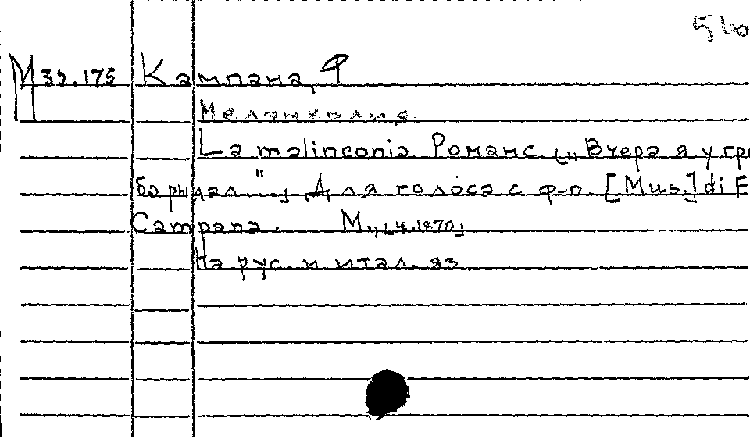 М 32.175 Кампана, Ф
Меланхолия.
La malinconia. Романс („Вчера я у гро
ба рыдал"...) Для голоса с ф-п. [Mus.] di F
Campana. М.,
На рус. и итал. яз.